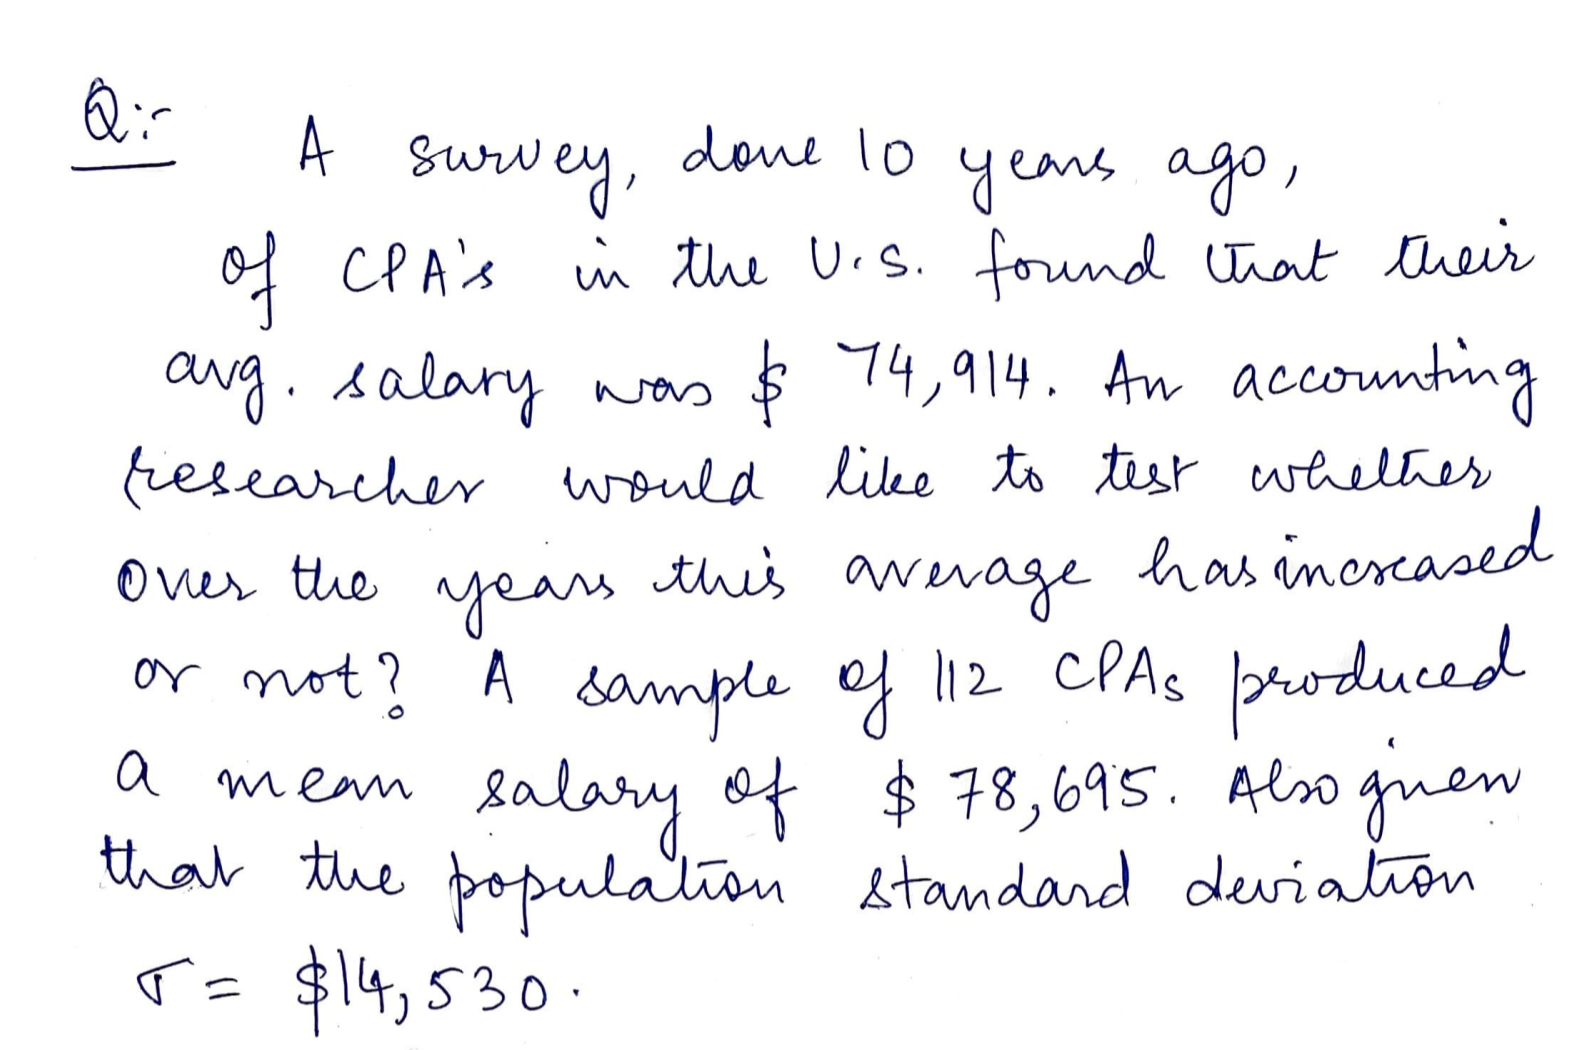 Q:-
A survey, done 10 years ago,
of CPA's in the U.S. found that their
avg. salary was $ 74,914. An accounting
researcher would like to test whether
over the years this average has increased
or not? A sample of 112 CPAs produced
a mean salary of $ 78,695. Also given
that the population standard deviation
σ = $14,530.